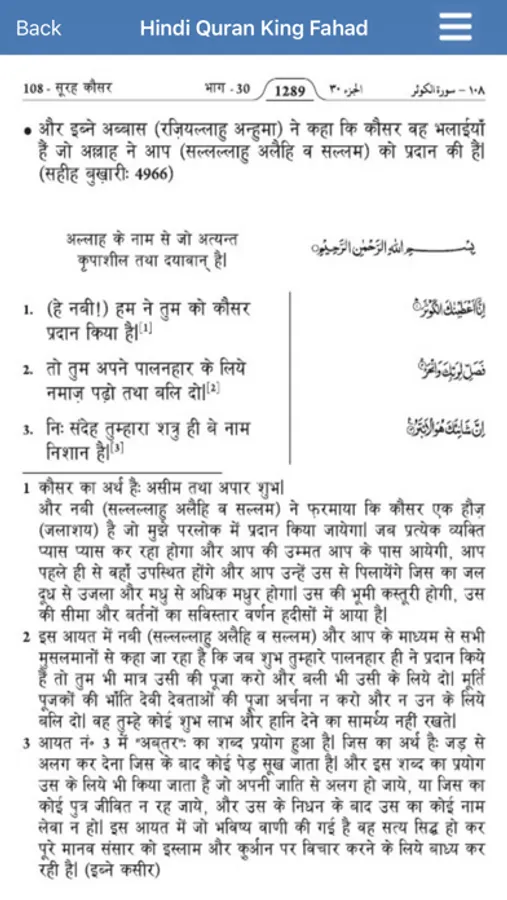 Back Hindi Quran King Fahad
108 - सूरह कौसर भाग - 30 1289 الجزء ٣٠ ١٠٨ – سورة الكوثر
• और इब्ने अब्बास (रज़ियल्लाहु अन्हुमा) ने कहा कि कौसर वह भलाईयाँ
हैं जो अल्लाह ने आप (सल्लल्लाहु अलैहि व सल्लम) को प्रदान की हैं।
(सहीह बुख़ारीः 4966)
अल्लाह के नाम से जो अत्यन्त
कृपाशील तथा दयावान् है।
بِسْمِ اللهِ الرَّحْمٰنِ الرَّحِيْمِ
1. (हे नबी!) हम ने तुम को कौसर
प्रदान किया है।[1]
اِنَّآ اَعْطَيْنٰكَ الْكَوْثَرَ
2. तो तुम अपने पालनहार के लिये
नमाज़ पढ़ो तथा बलि दो।[2]
فَصَلِّ لِرَبِّكَ وَانْحَرْ
3. निः संदेह तुम्हारा शत्रु ही बे नाम
निशान है।[3]
اِنَّ شَانِئَكَ هُوَ الْاَبْتَرُ
1 कौसर का अर्थ हैः असीम तथा अपार शुभ।
और नबी (सल्लल्लाहु अलैहि व सल्लम) ने फ़रमाया कि कौसर एक हौज़
(जलाशय) है जो मुझे परलोक में प्रदान किया जायेगा। जब प्रत्येक व्यक्ति
प्यास प्यास कर रहा होगा और आप की उम्मत आप के पास आयेगी, आप
पहले ही से वहाँ उपस्थित होंगे और आप उन्हें उस से पिलायेंगे जिस का जल
दूध से उजला और मधु से अधिक मधुर होगा। उस की भूमी कस्तूरी होगी, उस
की सीमा और बर्तनों का सविस्तार वर्णन हदीसों में आया है।
2 इस आयत में नबी (सल्लल्लाहु अलैहि व सल्लम) और आप के माध्यम से सभी
मुसलमानों से कहा जा रहा है कि जब शुभ तुम्हारे पालनहार ही ने प्रदान किये
हैं तो तुम भी मात्र उसी की पूजा करो और बली भी उसी के लिये दो। मूर्ति
पूजकों की भाँति देवी देवताओं की पूजा अर्चना न करो और न उन के लिये
बलि दो। वह तुम्हे कोई शुभ लाभ और हानि देने का सामर्थ्य नहीं रखते।
3 आयत नं॰ 3 में "अब्तर" का शब्द प्रयोग हुआ है। जिस का अर्थ हैः जड़ से
अलग कर देना जिस के बाद कोई पेड़ सूख जाता है। और इस शब्द का प्रयोग
उस के लिये भी किया जाता है जो अपनी जाति से अलग हो जाये, या जिस का
कोई पुत्र जीवित न रह जाये, और उस के निधन के बाद उस का कोई नाम
लेवा न हो। इस आयत में जो भविष्य वाणी की गई है वह सत्य सिद्ध हो कर
पूरे मानव संसार को इस्लाम और कुर्आन पर विचार करने के लिये बाध्य कर
रही है। (इब्ने कसीर)